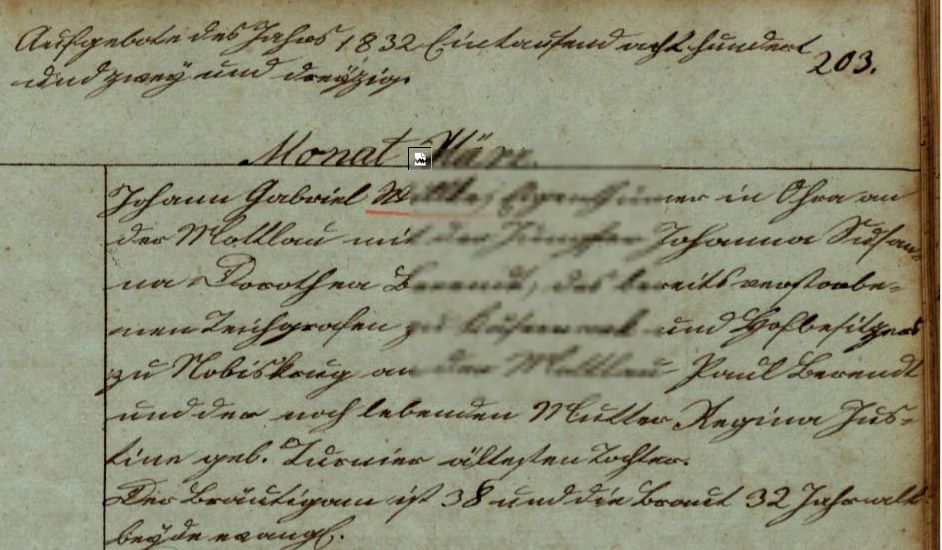 Aufgebote des Jahrs 1832 Eintausend acht hundert
und zwey und dreyzig.
203.
Monat März.
Johann Gabriel Eigenthümer in Ohra an
der Mottlau mit der Jungfer Johanna Susan-
na Dorothea Berendt, des bereits verstorbe-
nen Teichgrafen zu und Hofbesitzers
zu Nobiskrug an der Mottlau Paul Berendt
und der noch lebenden Mutter Regina Jus-
tine geb. Turnier ältesten Tochter.
Der Bräutigam ist 38 und die Braut 32 Jahr alt
beyde evangl.